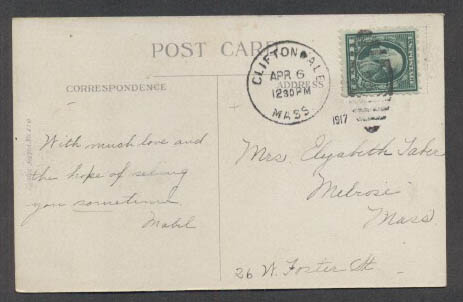 POST CARD
CORRESPONDENCE
ADDRESS
CLIFTONDALE
APR 6
1230PM
MASS
1917
With much love and
the hope of seeing
you sometime
Mabel
Mrs. Elizabeth Taber
Melrose
Mass.
26 W. Foster St